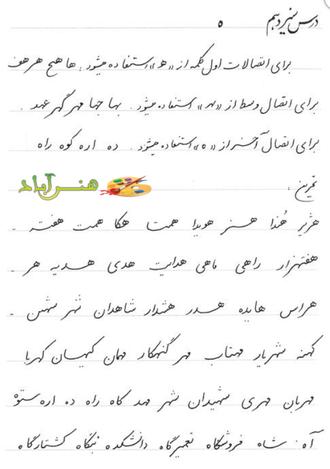 درس سیزدهم ه
برای اتصالات اول کلمه از «هـ» استفاده میشود. ها هیچ هر هف
برای اتصال وسط از «ـهـ» استفاده میشود. بها جها مهر گهر عهد.
برای اتصال آخر از «ه» استفاده میشود. ده اره کوه راه
تمرین:
هنرآباد
هژیر هُذا هنر هویدا همتا هکا همت هفته.
هفتهزار راهی ماهی هدایت هدی هدیه هر.
هراس هایده هدر هشدار شاهدان شهر
کهنه شهریار مهتاب مهر گنهکار مهمان کیهان کهربا
مهربان مهری شهیدان شهر مهد کاه راه ده اره ستوه
آه شاه فروشگاه تعمیرگاه دانشکده نگاه کشتارگاه